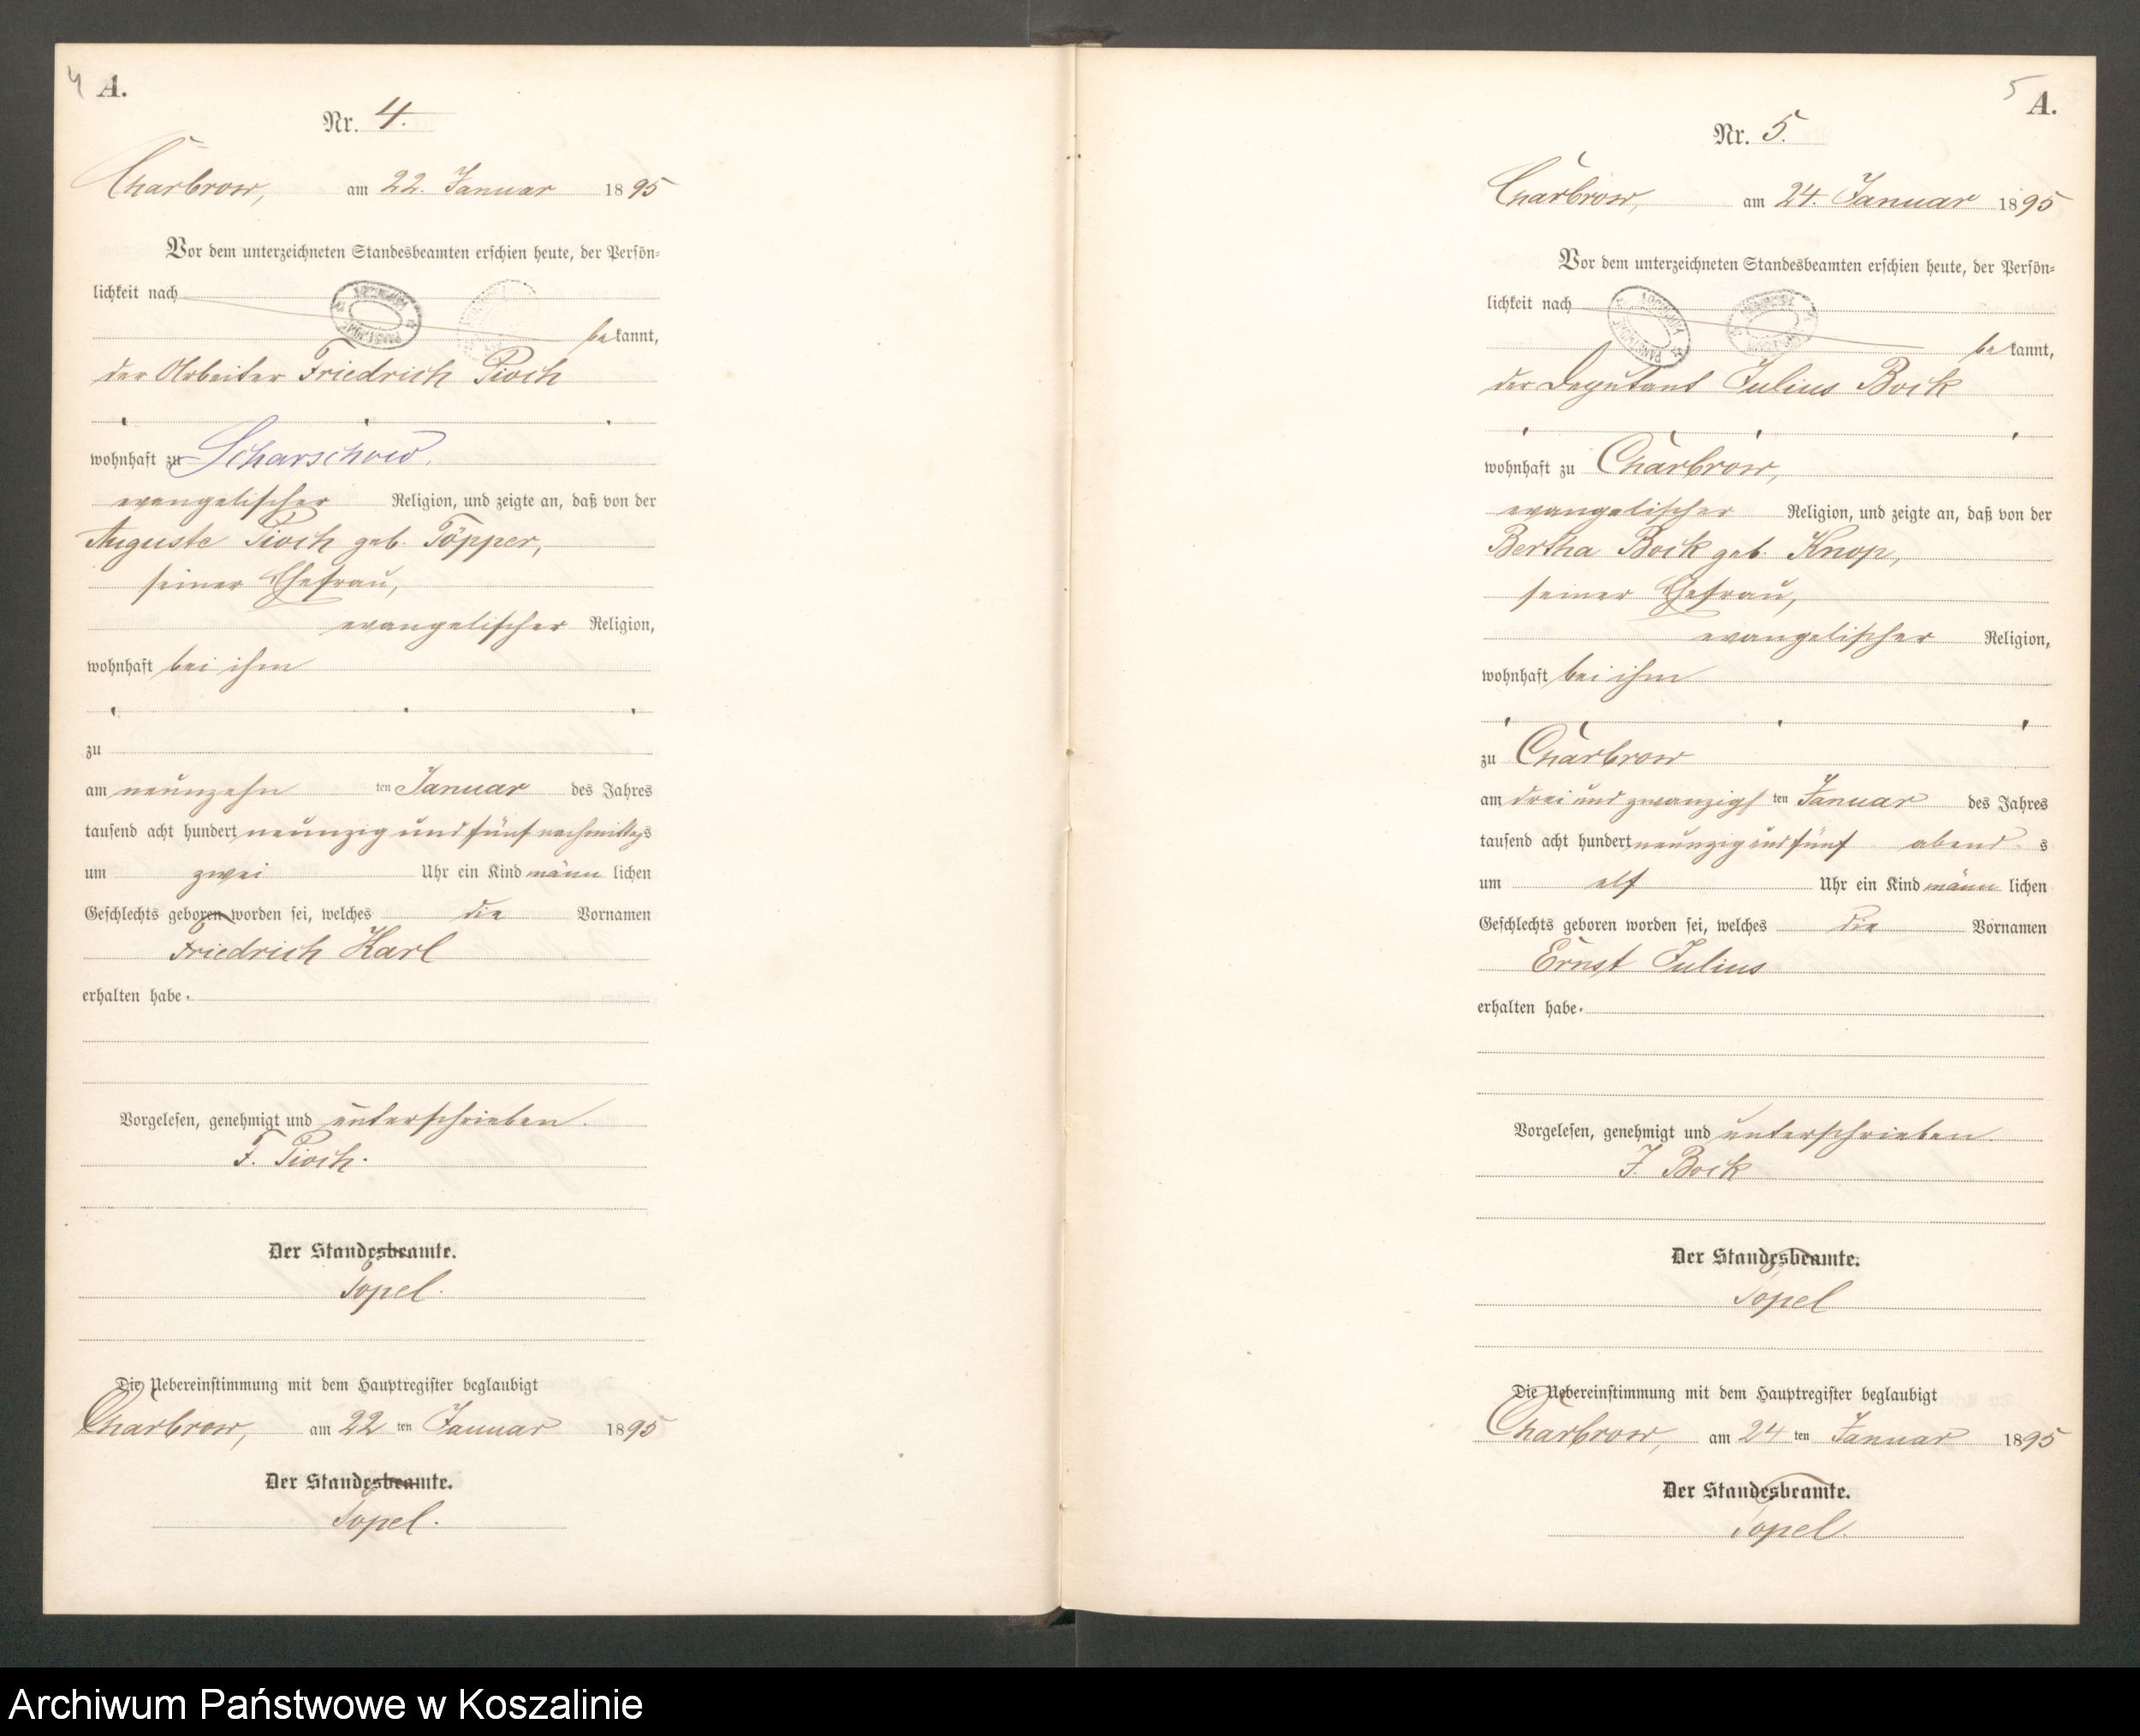 4 A.
Nr. 4.
Charbrow, am 22. Januar 1895
Vor dem unterzeichneten Standesbeamten erschien heute, der Persön-
lichkeit nach
bekannt,
der Arbeiter Friedrich Pioch
wohnhaft zu Scharschow.
evangelischer Religion, und zeigte an, daß von der
Auguste Pioch geb. Töpper,
seiner Ehefrau,
evangelischer Religion,
wohnhaft bei ihm
zu
am neunzehn ten Januar des Jahres
tausend acht hundert neunzig und fünf nachmittags
um zwei Uhr ein Kind männlichen
Geschlechts geboren worden sei, welches die Vornamen
Friedrich Karl
erhalten habe.
Vorgelesen, genehmigt und unterschrieben.
F. Pioch.
Der Standesbeamte.
Topel.
Die Uebereinstimmung mit dem Hauptregister beglaubigt
Charbrow, am 22 ten Januar 1895
Der Standesbeamte.
Topel.
5 A.
Nr. 5.
Charbrow, am 24. Januar 1895
Vor dem unterzeichneten Standesbeamten erschien heute, der Persön-
lichkeit nach
bekannt,
der Deputant Julius Bock
wohnhaft zu Charbrow,
evangelischer Religion, und zeigte an, daß von der
Bertha Bock geb. Knop,
seiner Ehefrau,
evangelischer Religion,
wohnhaft bei ihm
zu Charbrow
am drei und zwanzigs ten Januar des Jahres
tausend acht hundert neunzig und fünf abends
um elf Uhr ein Kind männlichen
Geschlechts geboren worden sei, welches die Vornamen
Ernst Julius
erhalten habe.
Vorgelesen, genehmigt und unterschrieben
J. Bock
Der Standesbeamte.
Topel
Die Uebereinstimmung mit dem Hauptregister beglaubigt
Charbrow, am 24 ten Januar 1895
Der Standesbeamte.
Topel.
Archiwum Państwowe w Koszalinie